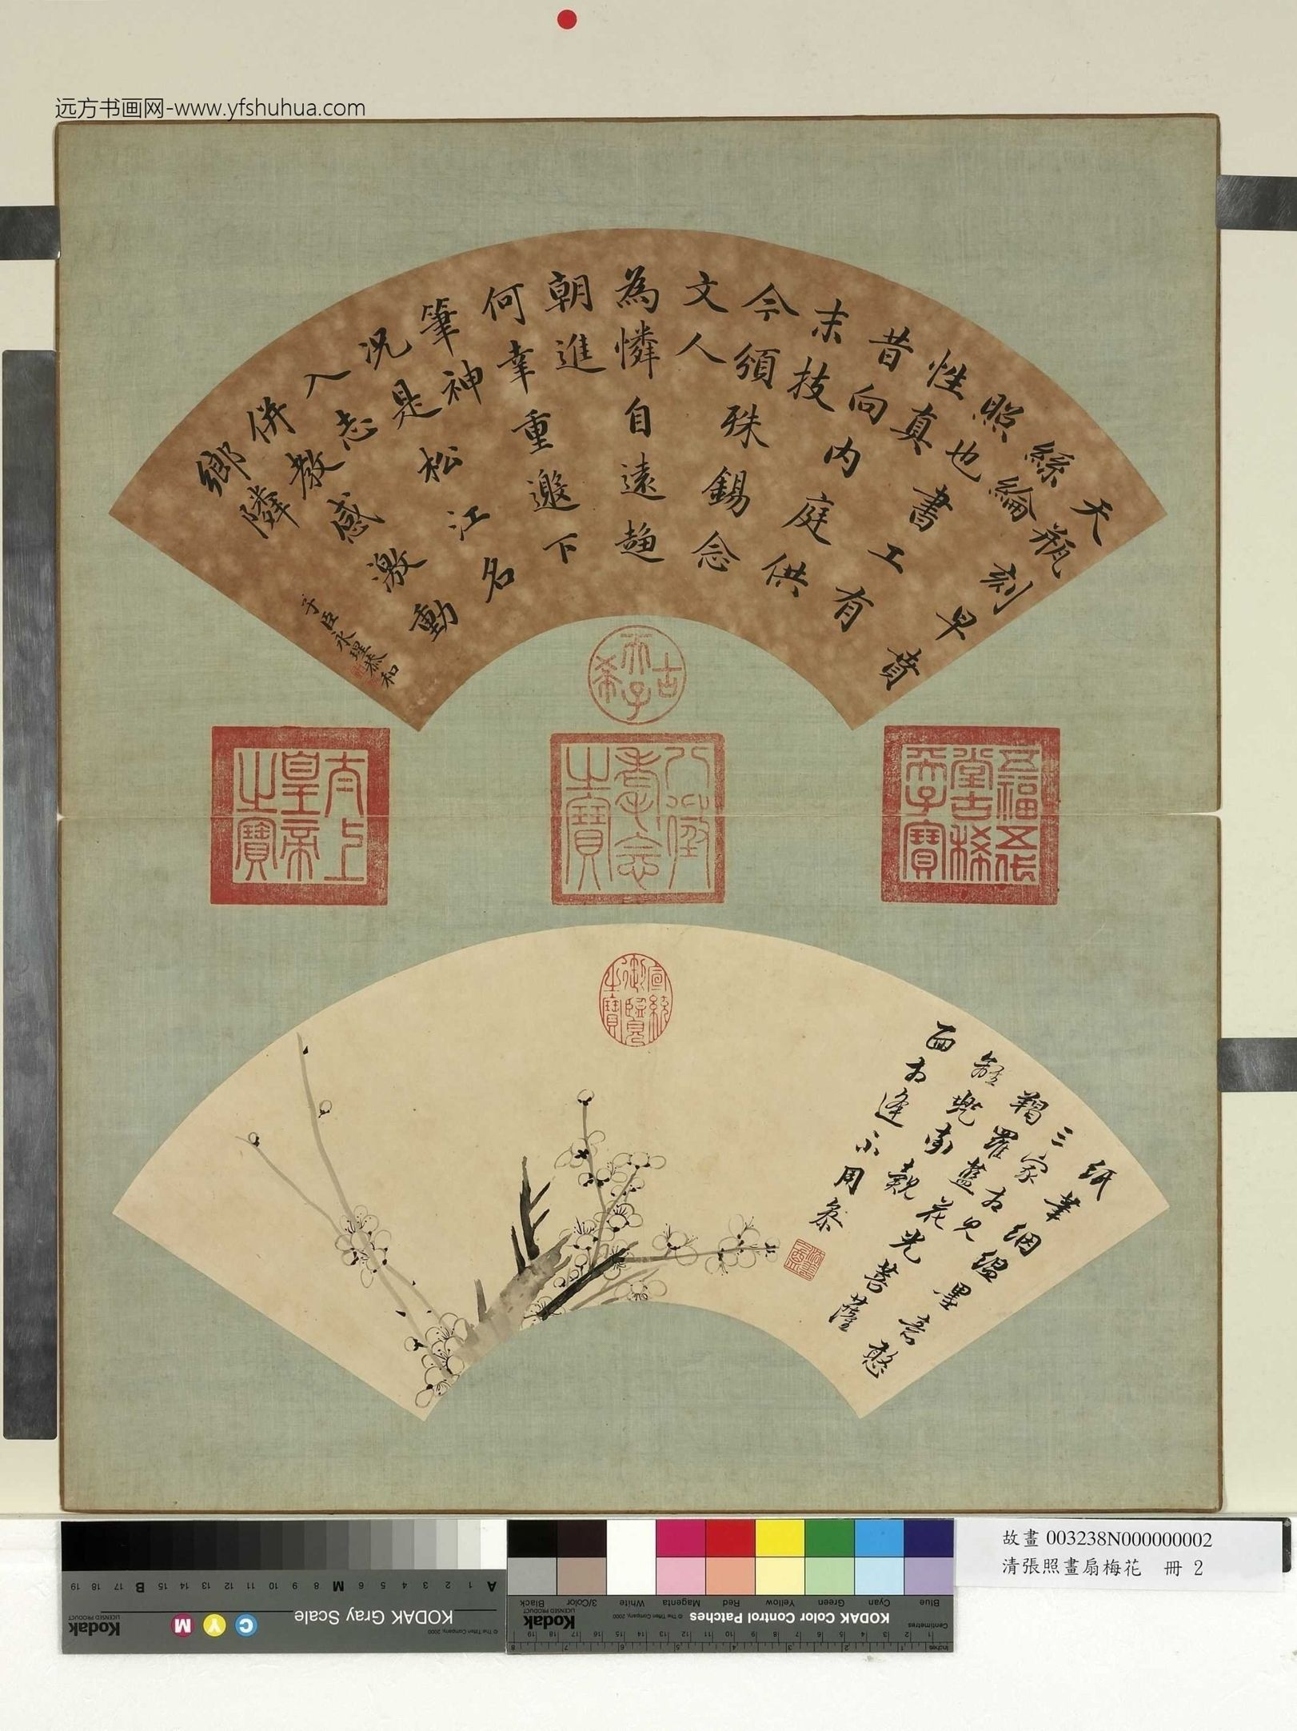 远方书画网-www.yfshuhua.com
天瓶刻早賁
絲綸
照也書工有
性真
昔向內庭供
末技
今頒殊錫念
文人
為憐自遠趨
朝進
何幸重邀下
筆神
況是松江名
入志
併教感激動
鄉隣
子臣永瑆恭和
古希天子
五福五代堂古稀天子寶
八徵耄念之寶
太上皇帝之寶
宣統御覽之寶
紙華絪縕墨意憨
三家相見
鞨羅藍花光菩薩
兜率覿
面相逢不用參
故畫 003238N000000002
清張照畫扇梅花 冊 2
KODAK Gray Scale
Kodak
C Y M
A 1 2 3 4 5 6 M 8 9 10 11 12 13 14 15 B 17 18 19
KODAK Color Control Patches
Kodak
Blue Cyan Green Yellow Red Magenta White 3/Color Black